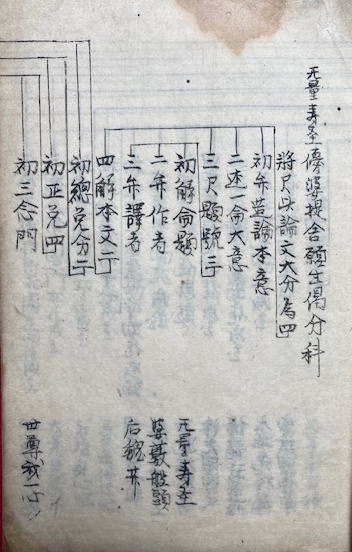 无量寿巠優婆提舍願生偈分科
將尺此論文大分為四
初弁造論本意
二述一侖大意
三尺題號三
初解侖題 无量寿巠
二弁作者 婆薮般頭
三弁譯者 后魏
四解本文二
初總分二
初正四
初三念門 世尊我一心